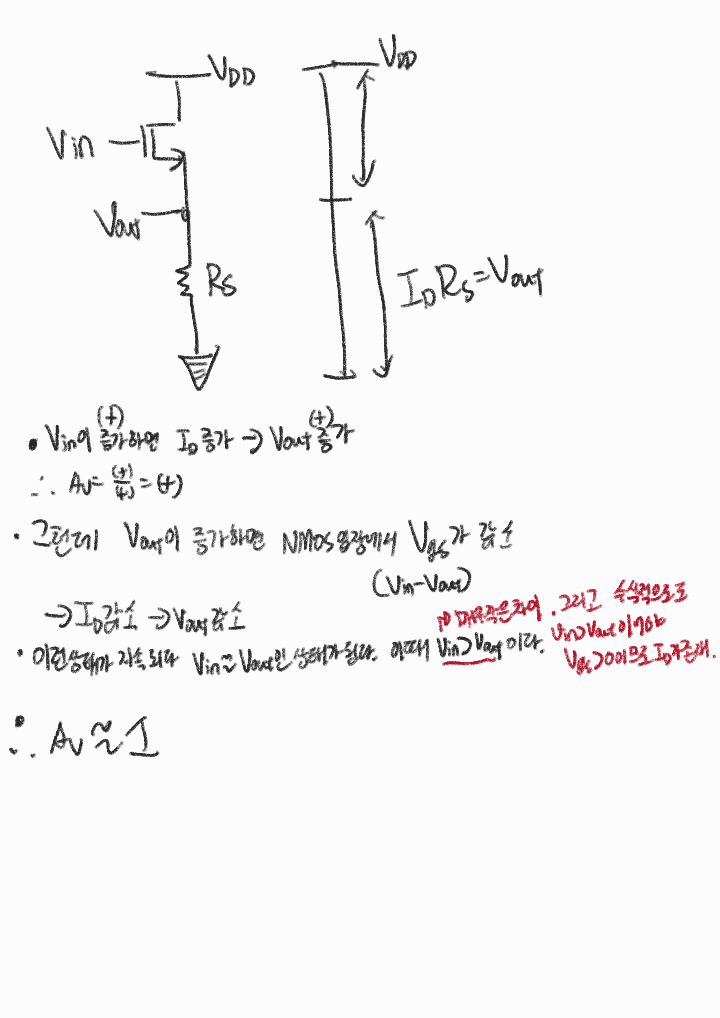 VDD
VDD
Vin
Vout
RS
IDRS=Vout
(+) (+)
• Vin이 증가하면 ID증가 → Vout 증가
∴ Av= (+)/(+) = (+)
• 그런데 Vout이 증가하면 NMOS입장에서 Vgs가 감소
(Vin-Vout)
→ ID감소 → Vout 감소
매우작은차이. 그리고 수식적으로도
• 이런상태가 지속되다 Vin≈Vout인 상태가 된다. 이때 Vin>Vout 이다.
Vin>Vout 이어야
Vgs>0이므로 ID가존재.
∴ Av≈1